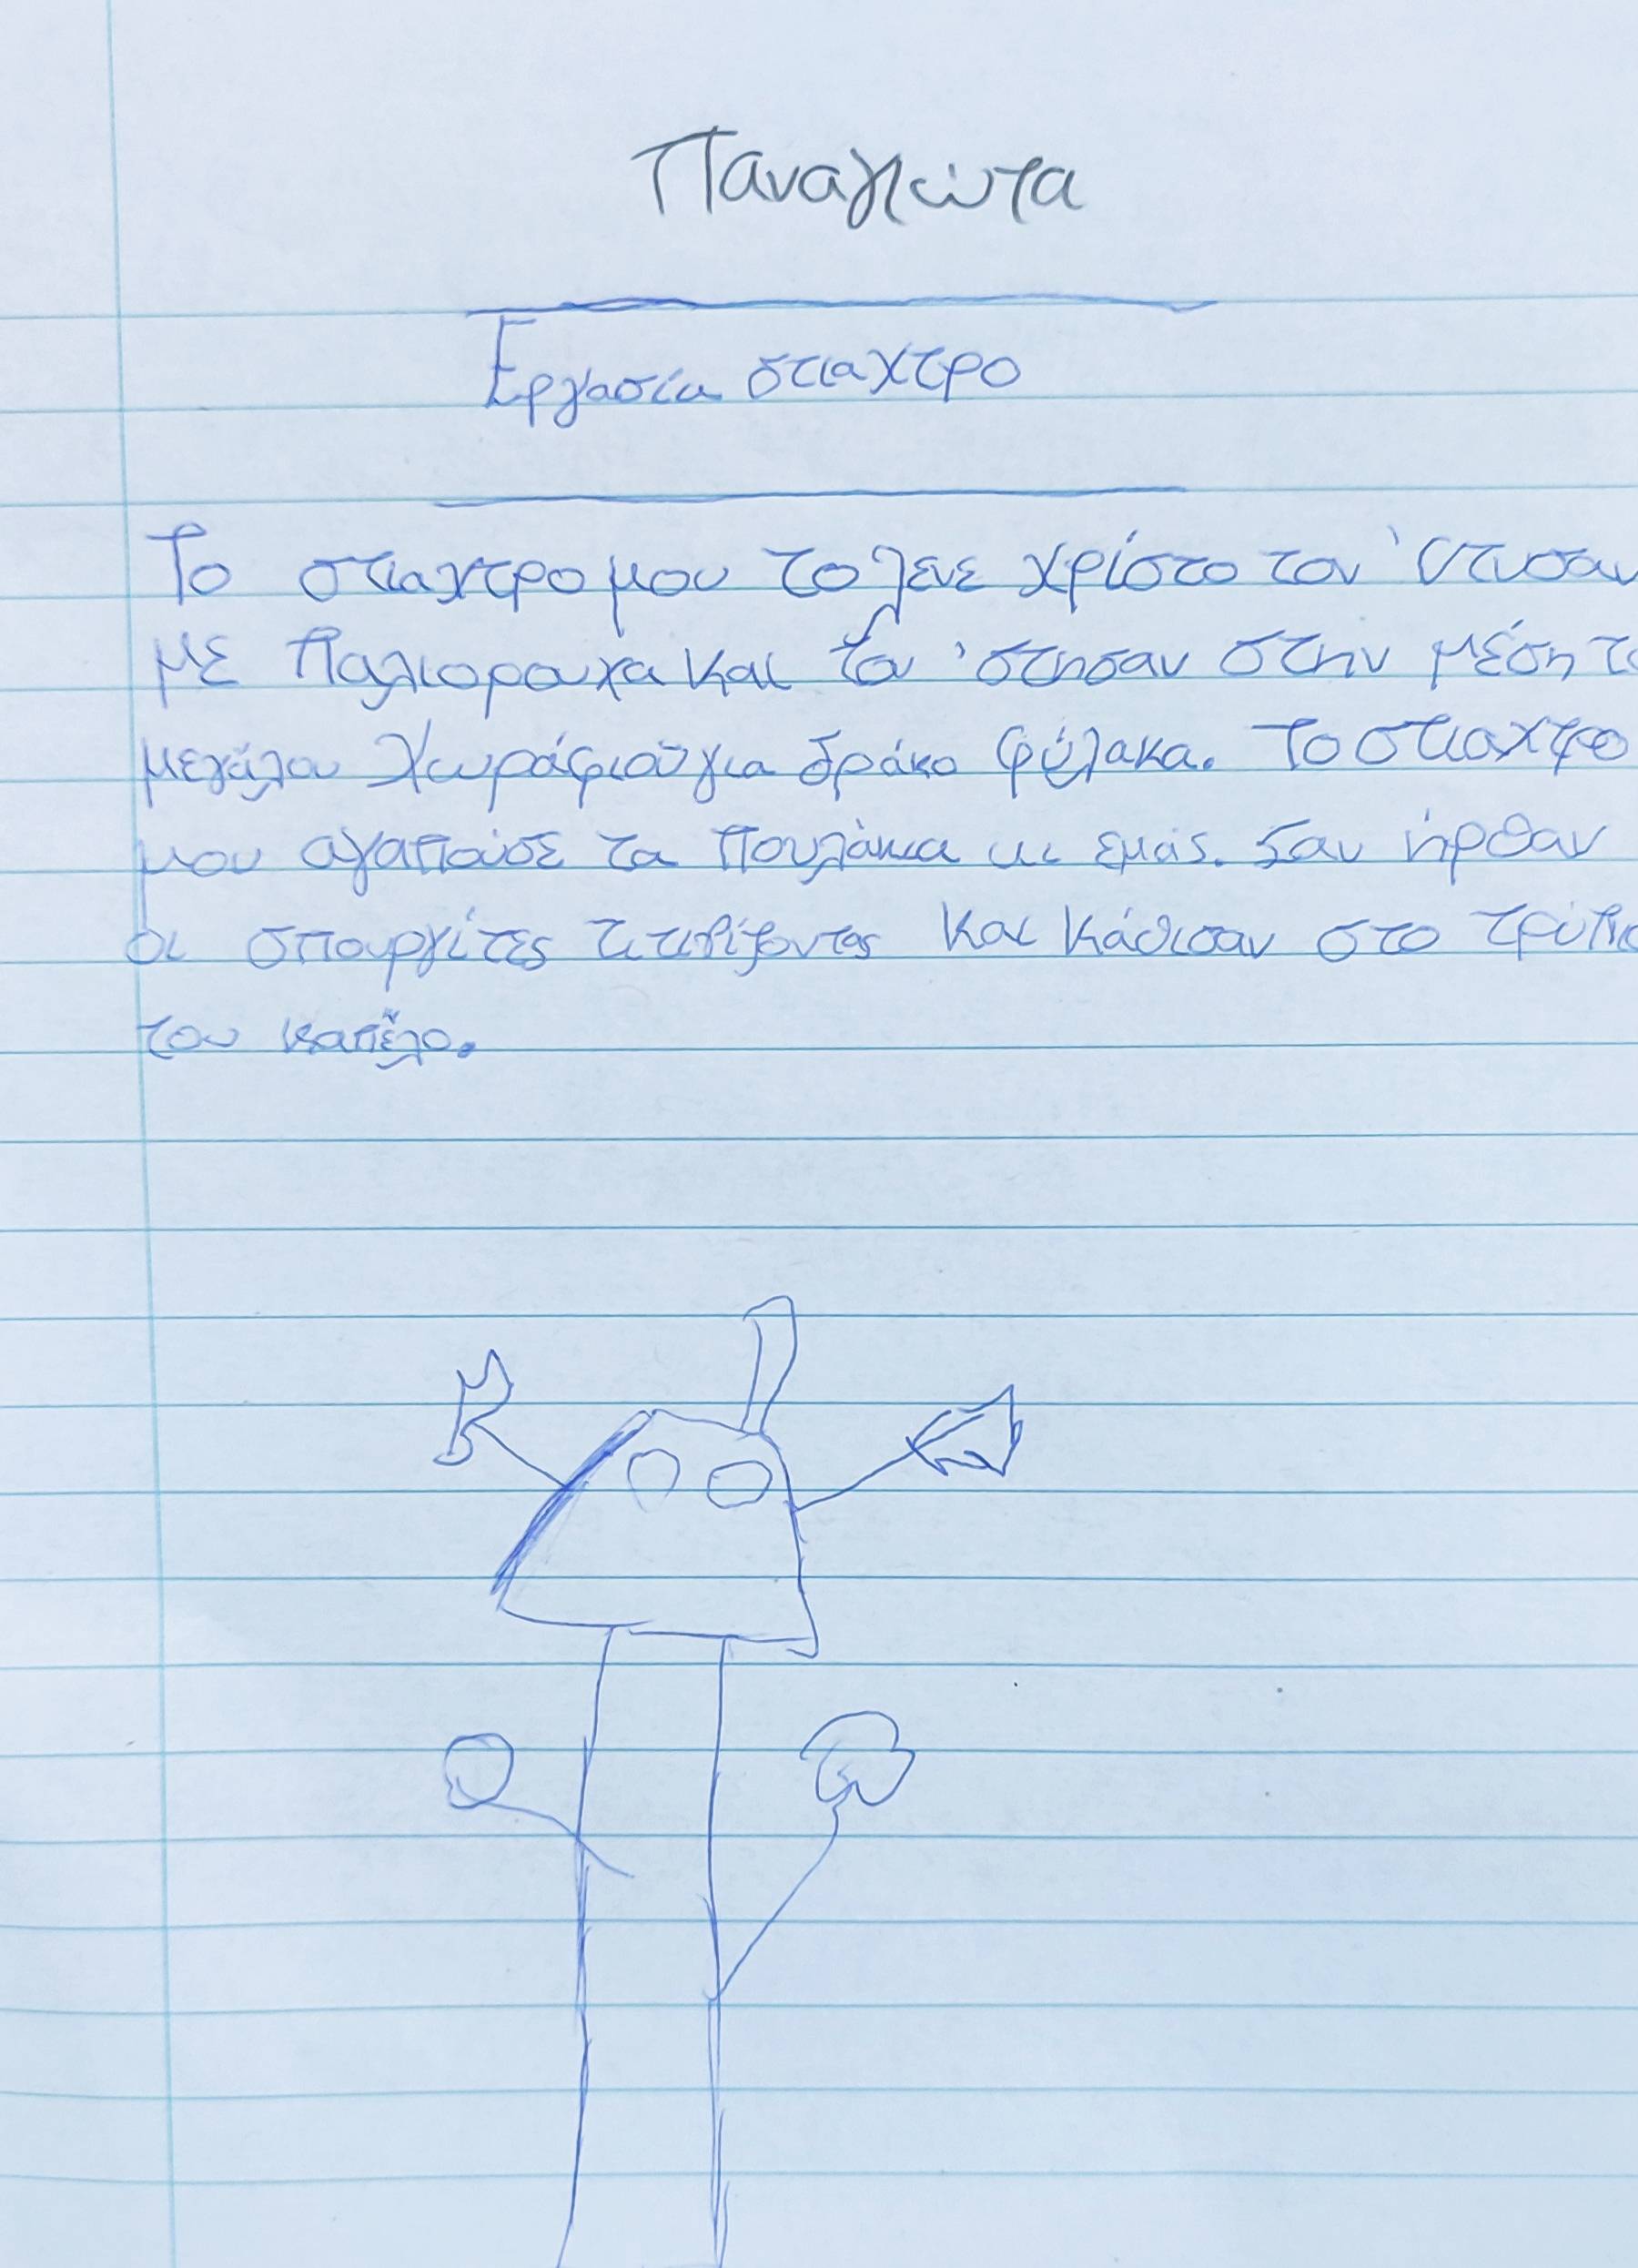 Παναγιώτα
Εργασία στιαχτρο
Το στιαχτρο μου το λενε χρίστο τον 'ντυσαν
με παλιορουχα και τον 'στησαν στην μέση
μεγάλου χωράφιού για δράκο φύλακα. Το στιαχτρο
μου αγαπούσε τα πουλάκια κι εμάς. Σαν ήρθαν
οι σπουργίτες τιτιβίζοντας και κάθισαν στο
του καπέλο.